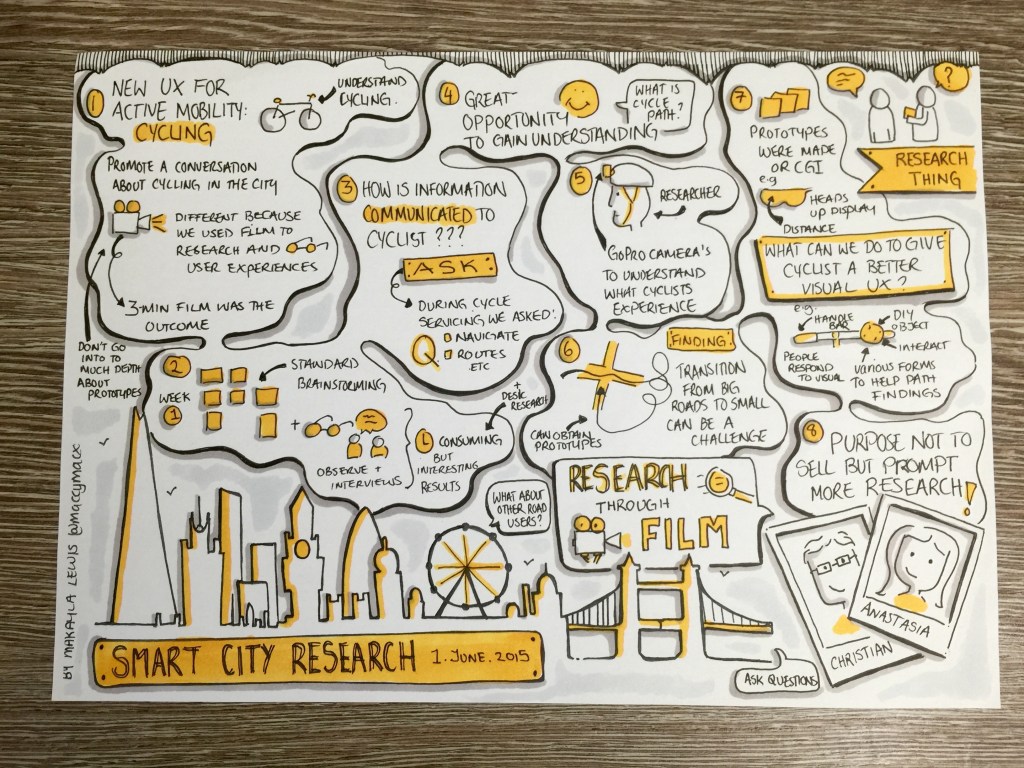 1
NEW UX FOR
ACTIVE MOBILITY:
CYCLING
UNDERSTAND
CYCLING.
PROMOTE A CONVERSATION
ABOUT CYCLING IN THE CITY
DIFFERENT BECAUSE
WE USED FILM TO
RESEARCH AND
USER EXPERIENCES
3-MIN FILM WAS THE
OUTCOME
DON'T GO
INTO TO
MUCH DEPTH
ABOUT
PROTOTYPES
2
WEEK
1
STANDARD
BRAINSTORMING
+
OBSERVE +
INTERVIEWS
+
DESK
RESEARCH
CONSUMING
BUT
INTERESTING
RESULTS
3
HOW IS INFORMATION
COMMUNICATED TO
CYCLIST ???
ASK
DURING CYCLE
SERVICING WE ASKED:
Q
NAVIGATE
ROUTES
ETC
4
GREAT
OPPORTUNITY
TO GAIN UNDERSTANDING
WHAT IS
CYCLE
PATH?
5
RESEARCHER
GOPRO CAMERA'S
TO UNDERSTAND
WHAT CYCLISTS
EXPERIENCE
6
FINDING
TRANSITION
FROM BIG
ROADS TO SMALL
CAN BE A
CHALLENGE
CAN OBTAIN
PROTOTYPES
7
?
PROTOTYPES
WERE MADE
OR CGI
e.g
HEADS
UP DISPLAY
DISTANCE
RESEARCH
THING
WHAT CAN WE DO TO GIVE
CYCLIST A BETTER
VISUAL UX?
e.g.
HANDLE
BAR
DIY
OBJECT
INTERACT
PEOPLE
RESPOND
TO VISUAL
VARIOUS FORMS
TO HELP PATH
FINDINGS
8
PURPOSE NOT TO
SELL BUT PROMPT
MORE RESEARCH!
RESEARCH
THROUGH
FILM
WHAT ABOUT
OTHER ROAD
USERS?
CHRISTIAN
ANASTASIA
ASK QUESTIONS
SMART CITY RESEARCH 1.JUNE.2015
BY MAKAYLA LEWIS @maccymacx